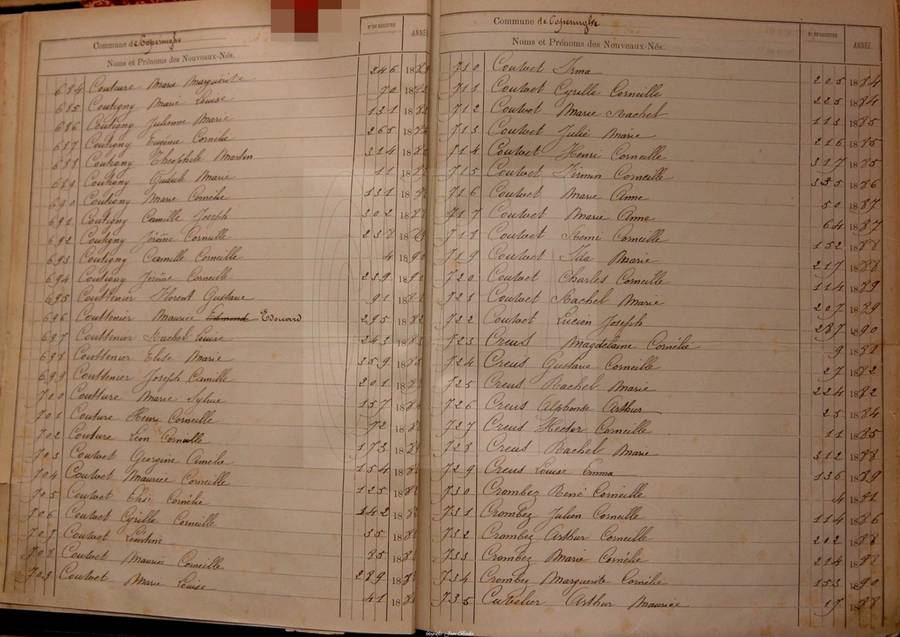 Commune de Poperinghe
Nos DE REGISTRE
ANNÉE
Noms et Prénoms des Nouveaux-Nés.
684 Couture Marie Marguerite 246 18
685 Coutigny Marie Louise 70 18
686 Coutigny Julienne Marie 131 18
687 Coutigny Eugénie Cornélie 265 18
688 Coutigny Théophile Martin 324 18
689 Coutigny Marie 11 18
690 Coutigny Marie Cornélie 131 18
691 Coutigny Camille Joseph 302 18
692 Coutigny Jérôme Corneille 238 18
693 Coutigny Camille Corneille 4 18
694 Coutigny Jérôme Corneille 239 18
695 Couttenier Florent Gustave 91 18
696 Couttenier Maurice Edmond Edouard 295 18
697 Couttenier Rachel Louise 243 18
698 Couttenier Elise Marie 359 18
699 Couttenier Joseph Camille 201 18
700 Coutture Marie Sylvie 157 18
701 Couture Henri Corneille 72 18
702 Couture Léon Corneille 173 18
703 Coutact Georgine Amélie 154 18
704 Coutact Maurice Corneille 125 18
705 Coutact Elise Cornélie 142 18
706 Coutact Cyrille Corneille 55 18
707 Coutact Léontine 85 18
708 Coutact Maurice Corneille 289 18
709 Coutact Marie Louise 41 18
Commune de Poperinghe
Nos DE REGISTRE
ANNÉE
Noms et Prénoms des Nouveaux-Nés.
710 Coutact Irma 205 1884
711 Coutact Cyrille Corneille 225 1884
712 Coutact Marie Rachel 113 1885
713 Coutact Julie Marie 216 1885
714 Coutact Henri Corneille 317 1885
715 Coutact Firmin Corneille 335 1886
716 Coutact Marie Anne 50 1887
717 Coutact Marie Anne 64 1887
718 Coutact Remi Corneille 152 1888
719 Coutact Ida Marie 217 1888
720 Coutact Charles Corneille 114 1889
721 Coutact Rachel Marie 207 1889
722 Coutact Lucien Joseph 287 1890
723 Creus Magdelaine Cornélie 9 1881
724 Creus Gustave Corneille 27 1882
725 Creus Rachel Marie 224 1882
726 Creus Alphonse Arthur 25 1884
727 Creus Hector Corneille 11 1885
728 Creus Rachel Marie 312 1888
729 Creus Louise Emma 136 1889
730 Crombez René Corneille 4 1881
731 Crombez Julien Corneille 114 1886
732 Crombez Arthur Corneille 202 1888
733 Crombez Marie Cornélie 224 1888
734 Crombez Marguerite Cornélie 153 1890
735 Cuvelier Arthur Maurice 17 1888